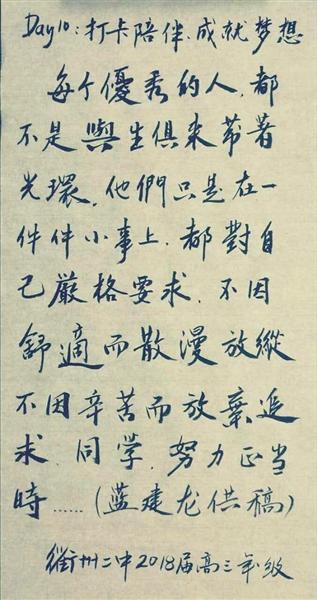 Day10:打卡陪伴.成就梦想
每个優秀的人.都
不是與生俱来带著
光環.他們只是在一
件件小事上.都對自
己嚴格要求.不因
舒適而散漫放縱
不因辛苦而放棄追
求.同学.努力正当
時……(蓝建龙供稿)
衢州二中2018届高三年级